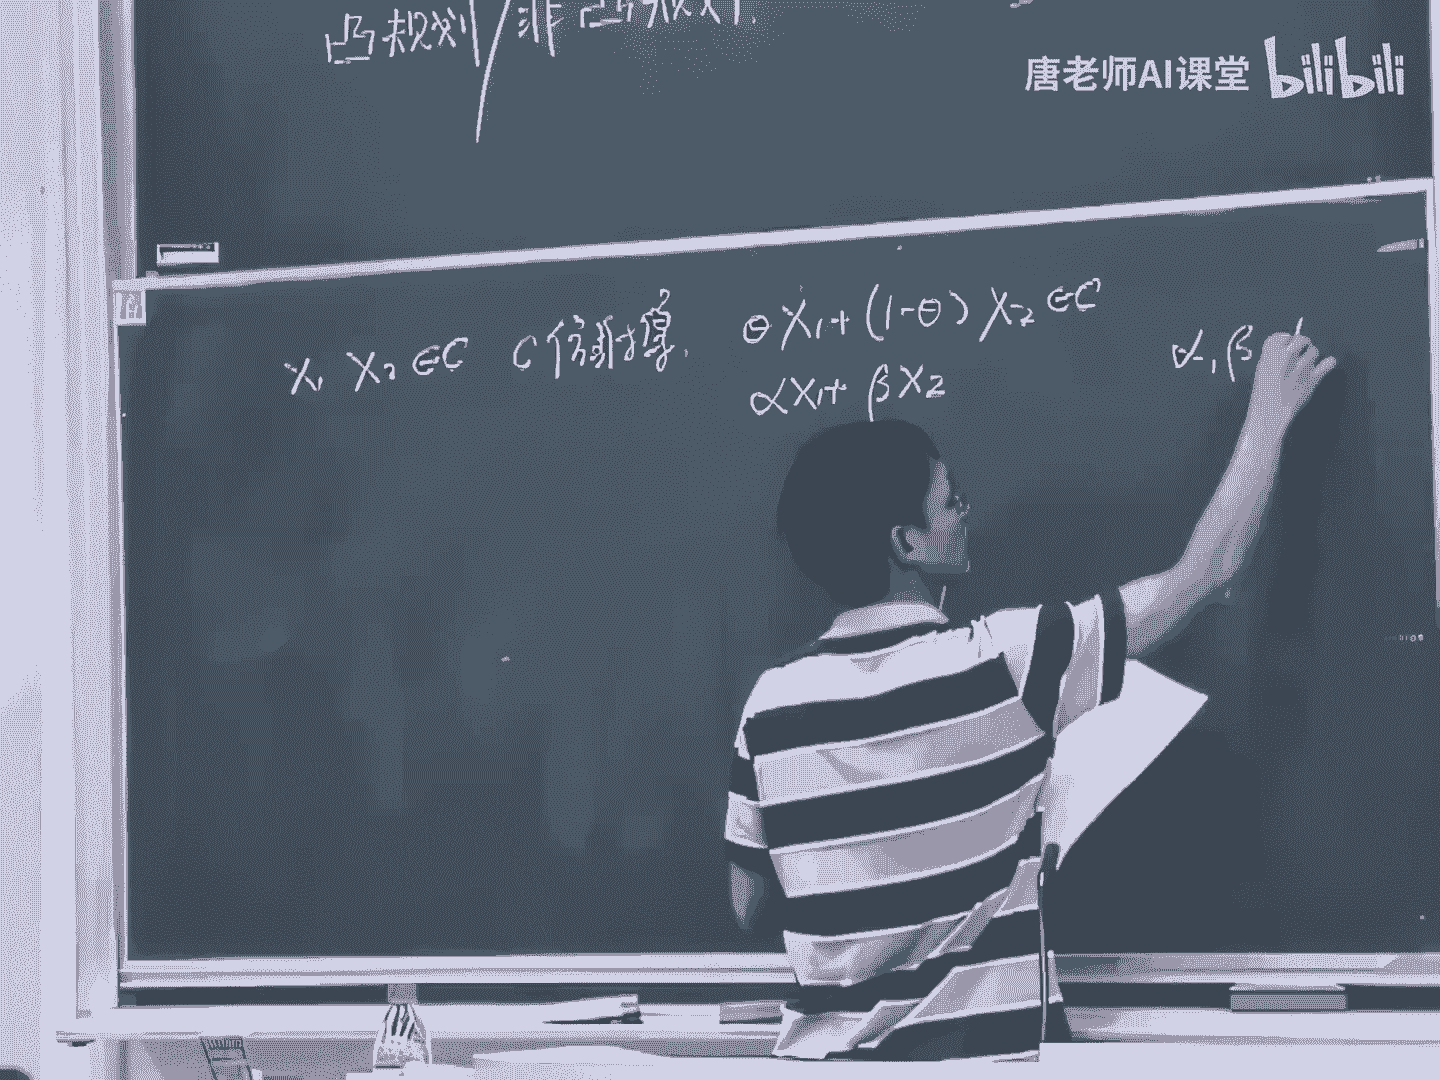 凸规划/非凸规划.
唐老师AI课堂 bilibili
x₁ x₂ ∈C C仿射集. θx₁+(1-θ)x₂∈C
αx₁+βx₂
α,β